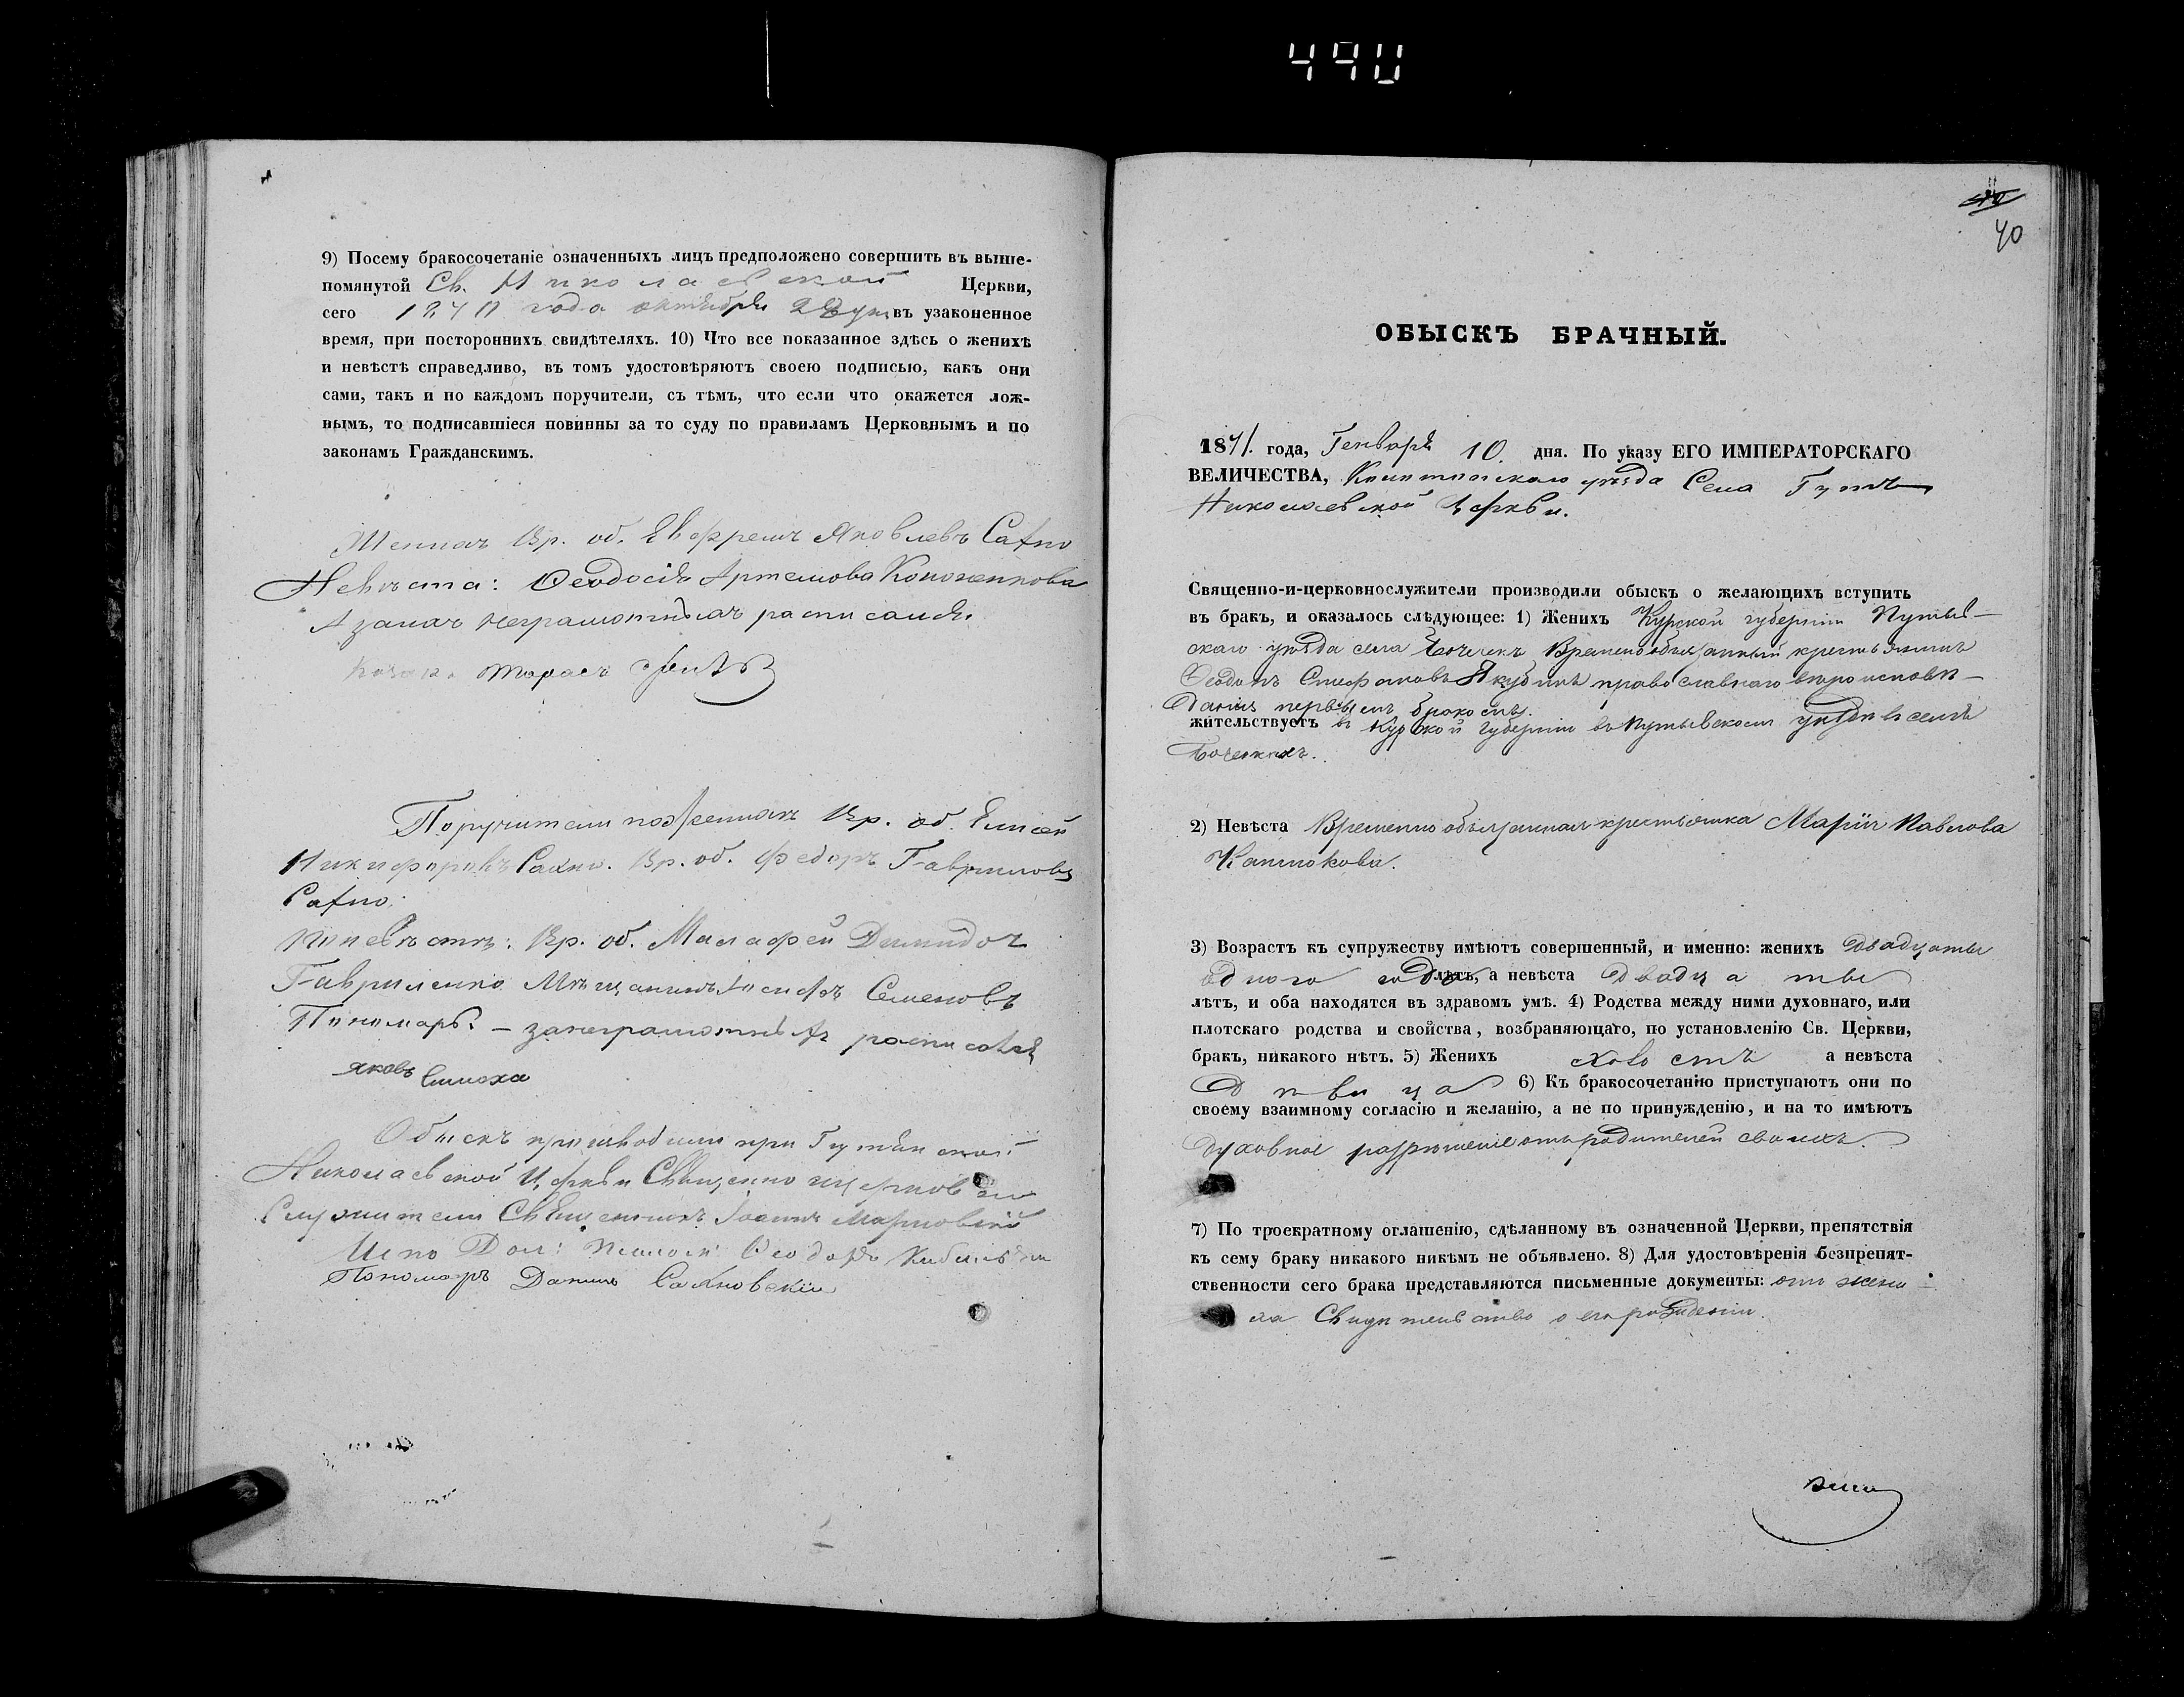 440
9) Посему бракосочетаніе означенныхъ лицъ предположено совершить въ выше-
помянутой Св. Николаевской Церкви,
сего 1870 года октября въ узаконенное
время, при постороннихъ свидѣтеляхъ. 10) Что все показанное здѣсь о женихѣ
и невѣстѣ справедливо, въ томъ удостовѣряютъ своею подписью, какъ они
сами, такъ и по каждомъ поручители, съ тѣмъ, что если что окажется лож-
нымъ, то подписавшіеся повинны за то суду по правиламъ Церковнымъ и по
законамъ Гражданскимъ.
Женихъ Вр. об. Яковлевъ Сахно
Невѣста: Ѳеодосія Артемова
А за неграмотныхъ расписался
Козакъ Тарасъ
Поручители по женихѣ Вр. об. Елисей
Никифоровъ Сахно. Вр. об. Федоръ Гавриловъ
Сахно.
По невѣстѣ: Вр. об. Малафей
Гавриленко Мѣщанинъ Іосифъ Семеновъ
Пономарь – за неграмотныхъ расписался
Яковъ
Обыскъ производили при
Николаевской Церкви Священно церковно
служители Священникъ Іоаннъ
Испо Дол: Ѳеодоръ
Пономарь Данилъ Сахновскій
40
ОБЫСКЪ БРАЧНЫЙ.
1871. года, Генваря 10. дня. По указу ЕГО ИМПЕРАТОРСКАГО
ВЕЛИЧЕСТВА, уѣзда Села Гутъ
Николаевской Церкви.
Священно-и-церковнослужители производили обыскъ о желающихъ вступить
въ бракъ, и оказалось слѣдующее: 1) Женихъ Курской губерніи Путив-
скаго уѣзда села Бочечекъ Временнообязанный крестьянинъ
Стефановъ Якубинъ православнаго вѣроисповѣ-
данія первымъ бракомъ.
жительствуетъ въ Курской губерніи въ Путивскомъ уѣздѣ въ селѣ
Бочечкахъ.
2) Невѣста Временно обязанная крестьянка Марія Павлова
3) Возрастъ къ супружеству имѣютъ совершенный, и именно: женихъ двадцаты
одного года лѣтъ, а невѣста двадцаты
лѣтъ, и оба находятся въ здравомъ умѣ. 4) Родства между ними духовнаго, или
плотскаго родства и свойства, возбраняющаго, по установленію Св. Церкви,
бракъ, никакого нѣтъ. 5) Женихъ холостъ а невѣста
дѣвица 6) Къ бракосочетанію приступаютъ они по
своему взаимному согласію и желанію, а не по принужденію, и на то имѣютъ
духовное разрѣшеніе отъ родителей своихъ.
7) По троекратному оглашенію, сдѣланному въ означенной Церкви, препятствія
къ сему браку никакого никѣмъ не объявлено. 8) Для удостовѣренія безпрепят-
ственности сего брака представляются письменные документы: отъ жени-
ха Свидѣтельство о его рожденіи.